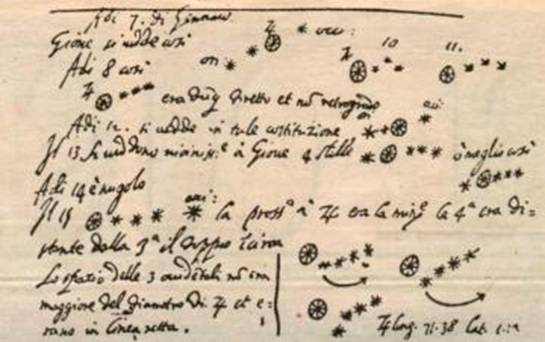 Adi 7. di Gennaio
Gioue si uedde così ori. occ:
Adi 8 così 10 11.
era dunque diretto et non retrogrado
Adi 12. si uedde in tale costituzione ori occi:
Il 13 si ueddono à Gioue 4 stelle ò meglio così
Adi 14 è nugolo
Il 15 occi: la pross.ª à ♃ era la min.e la 4.ª era di=
stante dalla 3.ª il doppio circa
Lo spatio delle 3 occidentali nõ era
maggiore del diametro di ♃ et e=
rano in linea retta.
♃ long. 71.38 lat.